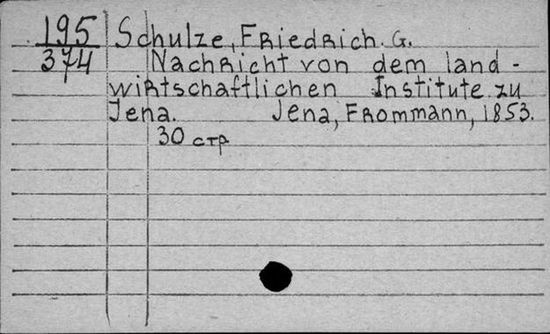 195 Schulze, Friedrich. G.
374 Nachricht von dem land-
wirtschaftlichen Institute zu
Jena. Jena, Frommann, 1853.
30 стр